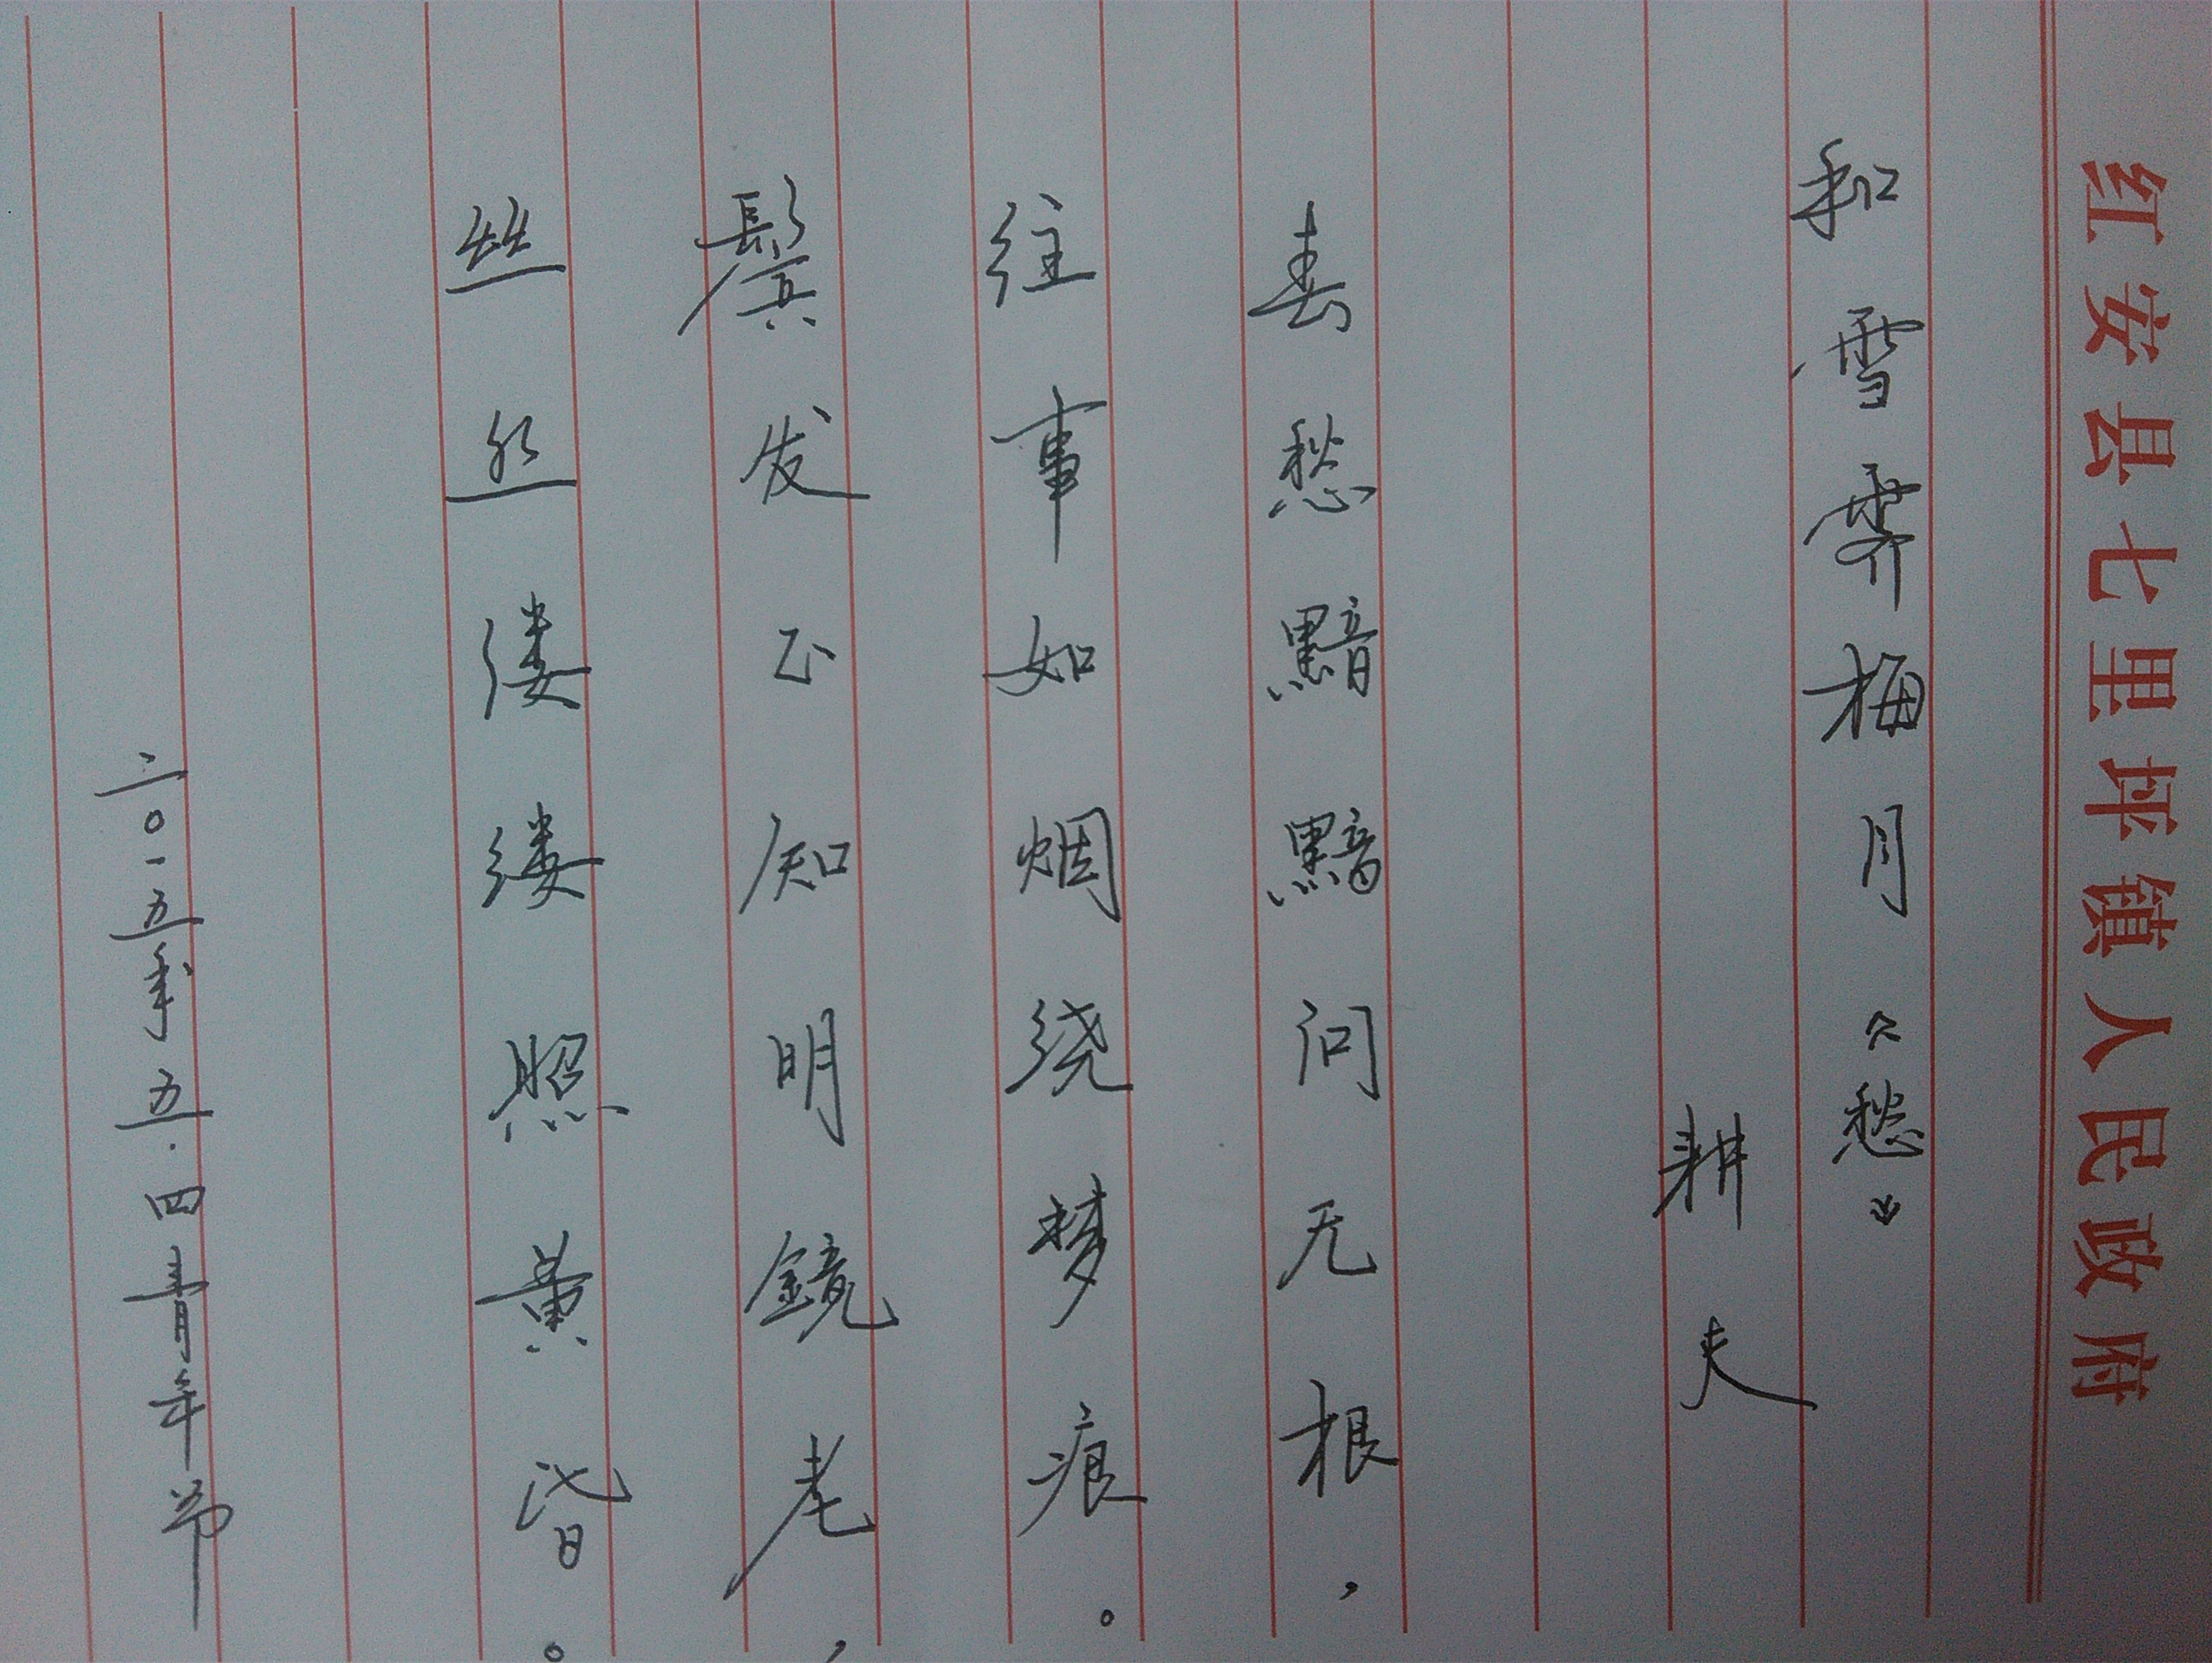 红安县七里坪镇人民政府
和雪霁梅月《愁》
耕夫
春愁黯黯问无根，
往事如烟绕梦痕。
鬓发不知明鏡老，
丝丝缕缕照黄昏。
二〇一五年五·四青年节